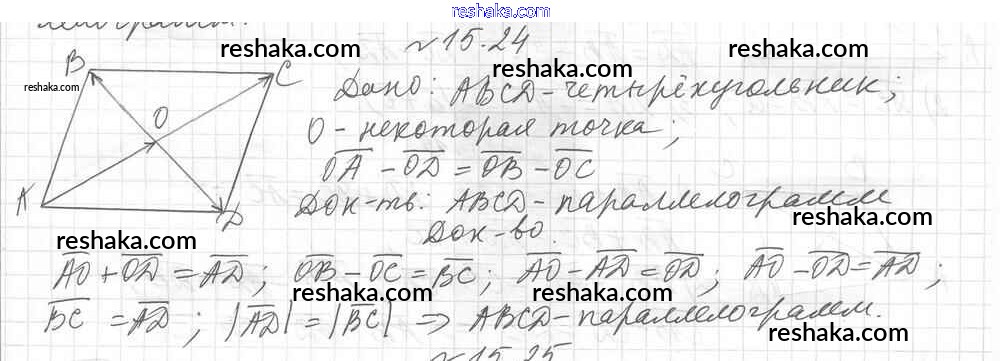 www.reshaka.com
№ 15.24
reshaka.com reshaka.com reshaka.com
B C
reshaka.com
O
A D
Дано: ABCD - четырёхугольник;
O - некоторая точка;
reshaka.com
OA - OD = OB - OC
Док-ть: ABCD - параллелограмм
reshaka.com reshaka.com
Док-во.
reshaka.com
AO + OD = AD; OB - OC = BC; AO - AD = OD; AO - OD = AD;
reshaka.com reshaka.com reshaka.com
BC = AD; |AD| = |BC| ⇒ ABCD - параллелограмм.
reshaka.com
№ 15.25